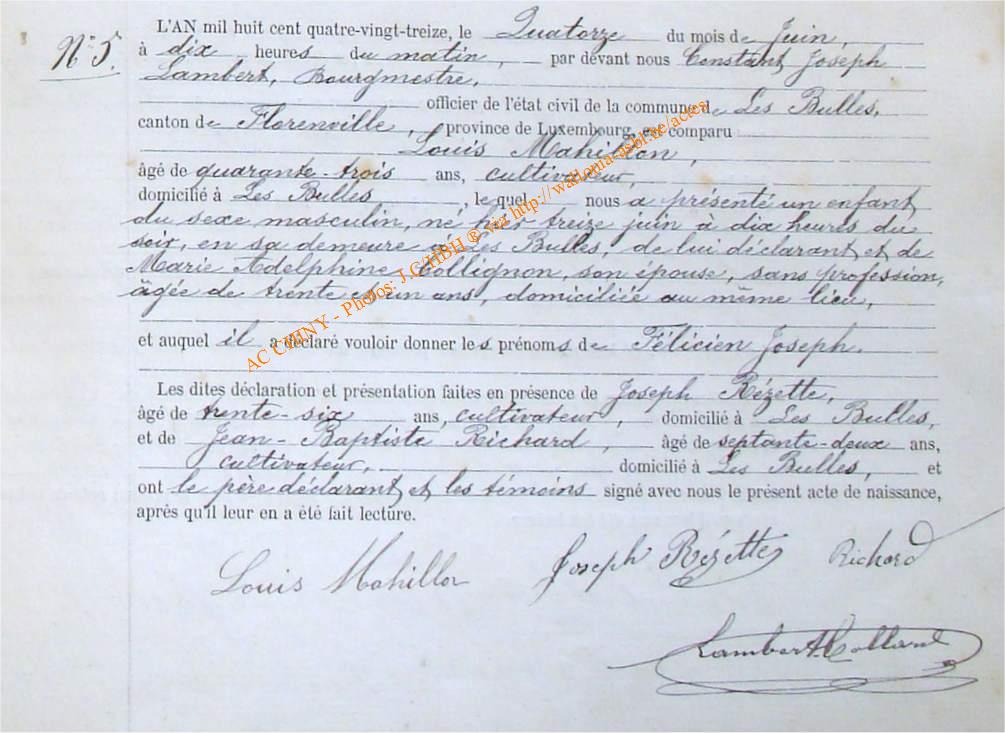 N° 5.
L'AN mil huit cent quatre-vingt-treize, le Quatorze du mois de Juin,
à dix heures du matin, par devant nous Constant Joseph
Lambert, Bourgmestre,
officier de l'état civil de la commune de Les Bulles,
canton de Florenville, province de Luxembourg, est comparu
Louis Mahillon,
âgé de quarante-trois ans, cultivateur,
domicilié à Les Bulles, lequel nous a présenté un enfant
du sexe masculin, né hier treize juin à dix heures du
soir, en sa demeure à Les Bulles, de lui déclarant et de
Marie Adelphine Collignon, son épouse, sans profession,
âgée de trente et un ans, domiciliée au même lieu,
et auquel il a déclaré vouloir donner les prénoms de Félicien Joseph.
Les dites déclaration et présentation faites en présence de Joseph Rézette,
âgé de trente-six ans, cultivateur, domicilié à Les Bulles,
et de Jean-Baptiste Richard, âgé de septante-deux ans,
cultivateur, domicilié à Les Bulles, et
ont le père déclarant et les témoins signé avec nous le présent acte de naissance,
après qu'il leur en a été fait lecture.
Louis Mahillon Joseph Rézette Richard
Lambert-Collard
AC CHINY - Photos: J.C.HBH ® via http://wallonia-asbl.be/actes